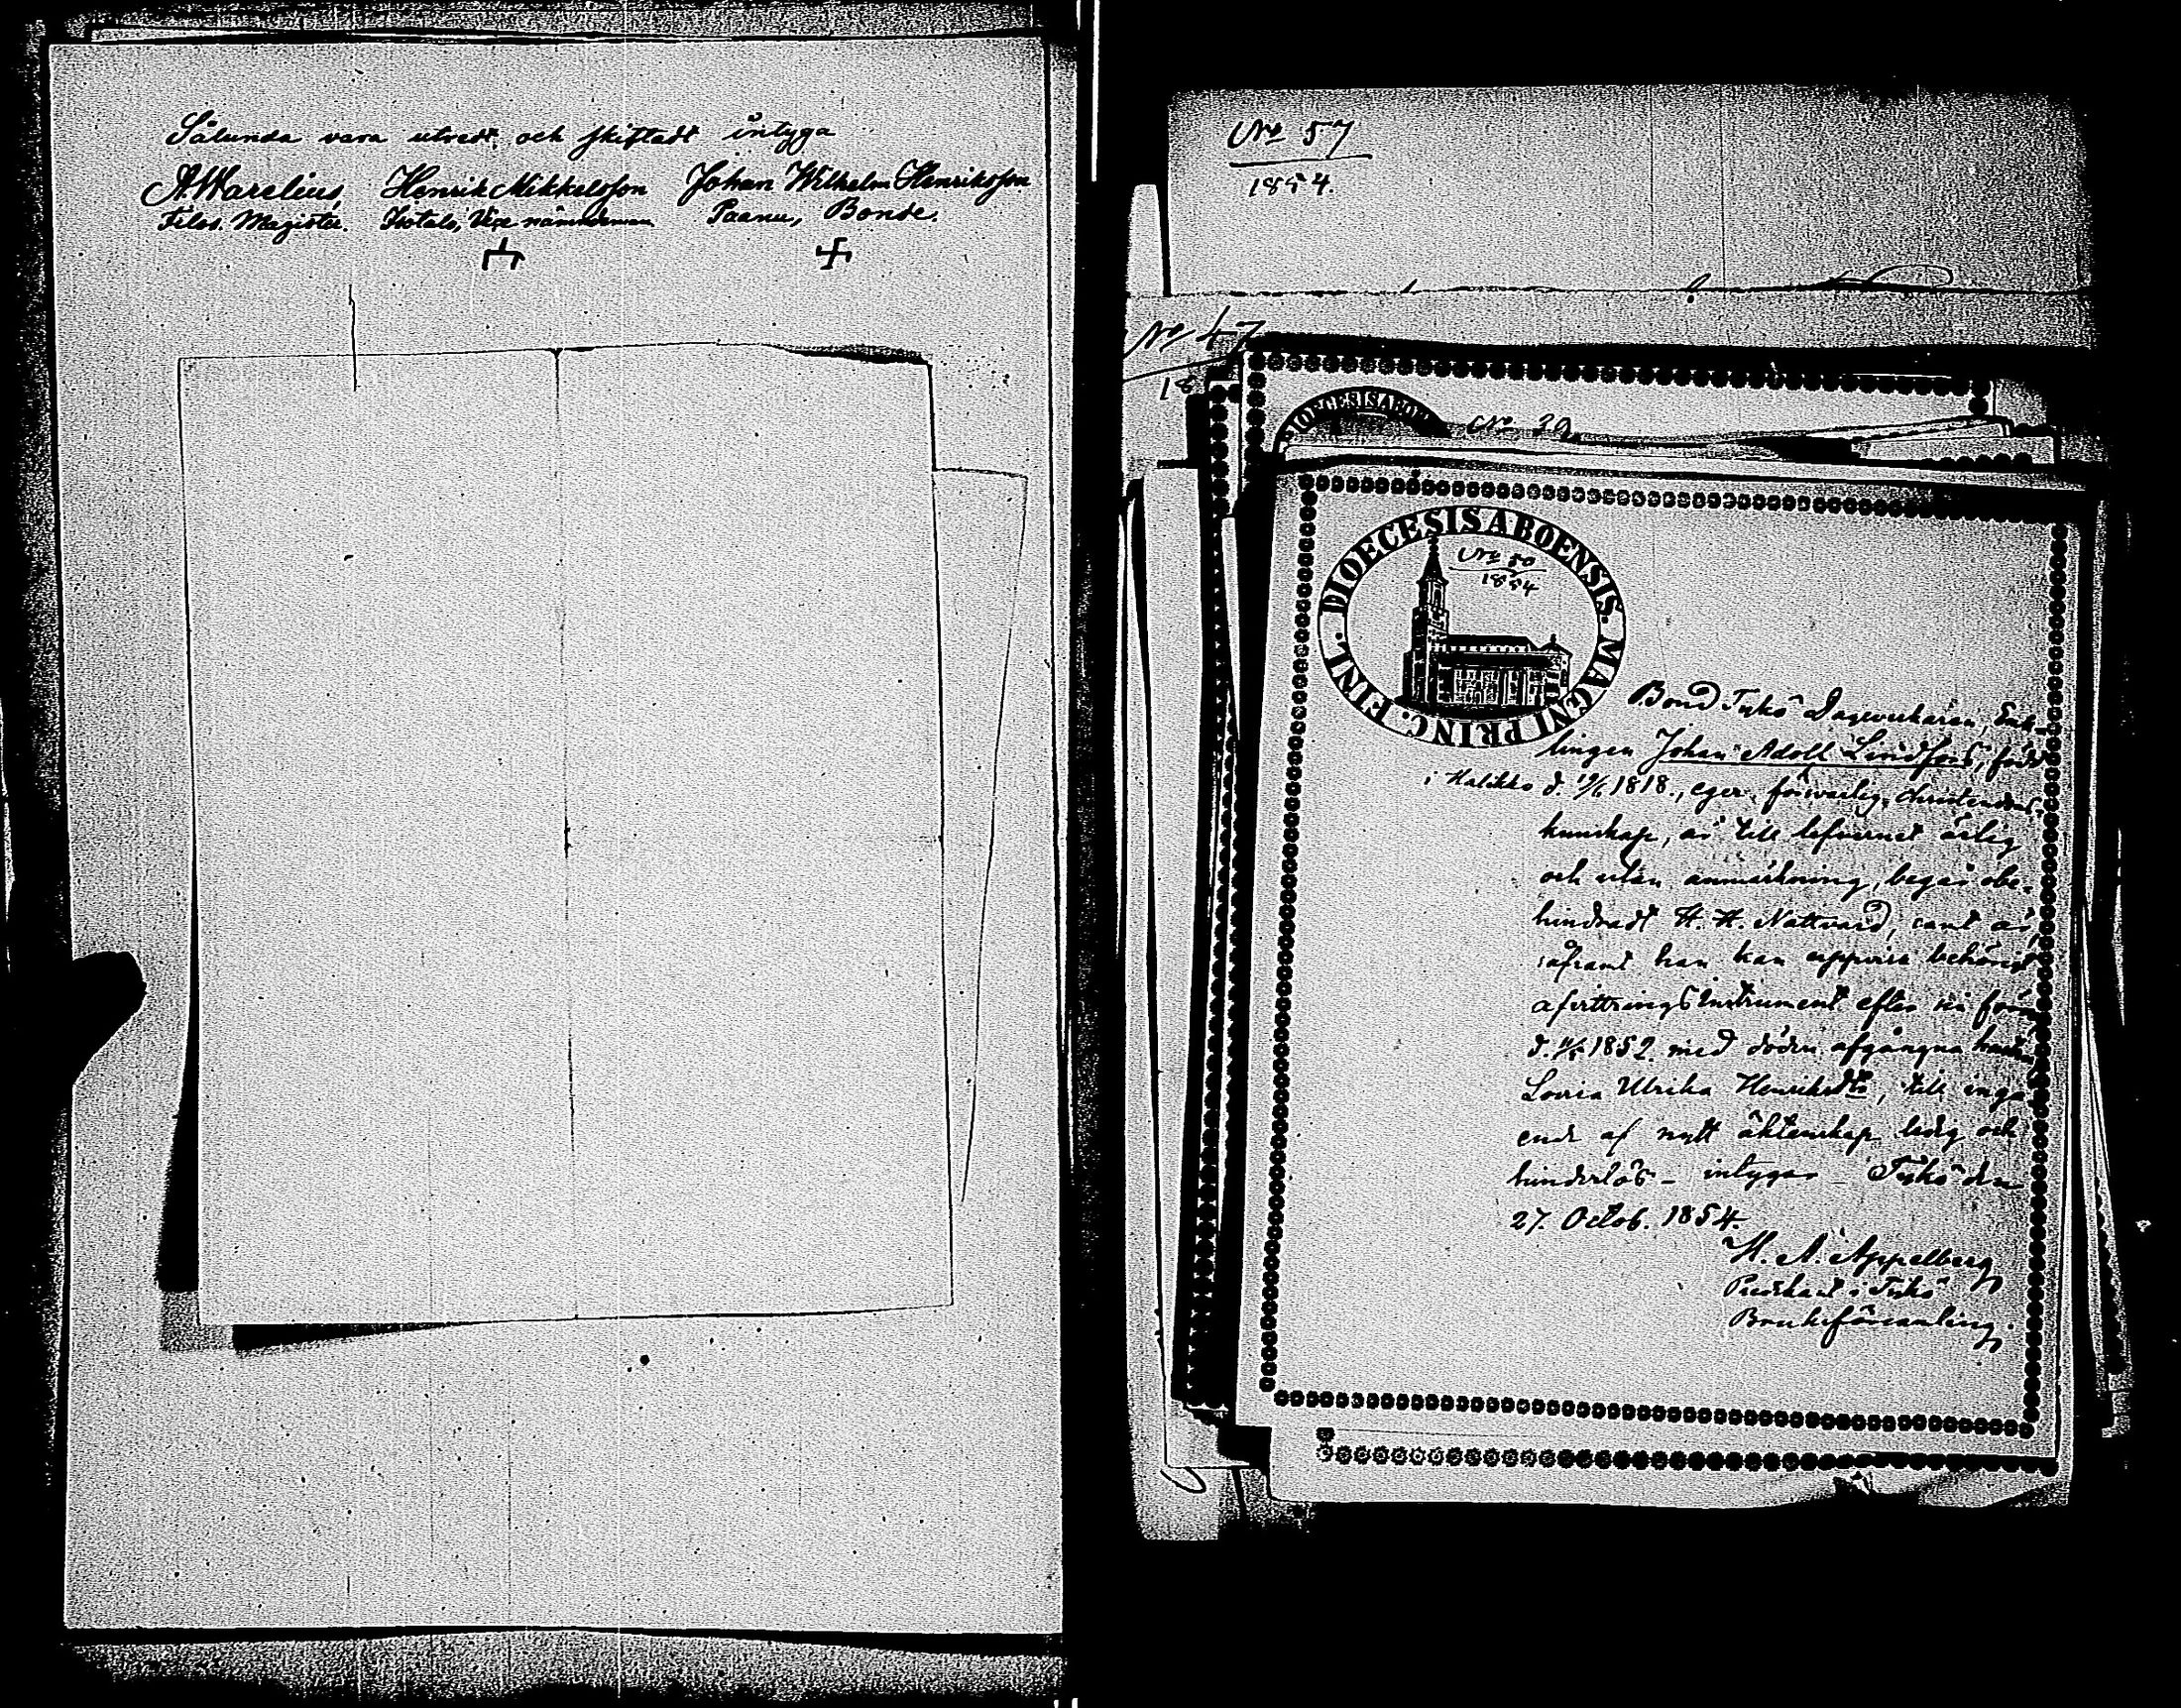 Sålunda vara utredt och skiftadt intyga
A Warelius, Henrik Mikkelsson Johan Wilhelm Henriksson
Filos. Magister. Isotalo, Vice nämndeman Paanu, Bonde.
No 57
1854.
No 47
18
DIOECESIS ABOE
No 39
DIOECESIS ABOENSIS. MAGNI PRINC. FINL.
No 50
1854
Bond Tykö Dagsverkaren, Enk-
lingen Johan Adolf Lindfors, född
i Halikko d. 19/6 1818, eger försvarlig christendoms-
kunskap, är till lefvernet ärlig
och utan anmärkning, begår obe-
hindradt H. H. Nattvard, samt är,
såframt han kan uppvisa behörigt
afvittringsinstrument efter sin förra
d. 1852 med döden afgångna hustru
Lovisa Ulrika Henriksdtr, till ingå-
ende af nytt äktenskap ledig och
hinderlös - intygar Tykö den
27. Octob. 1854
H. A. Appelberg
Predikant i Tykö
Bruksförsamling.